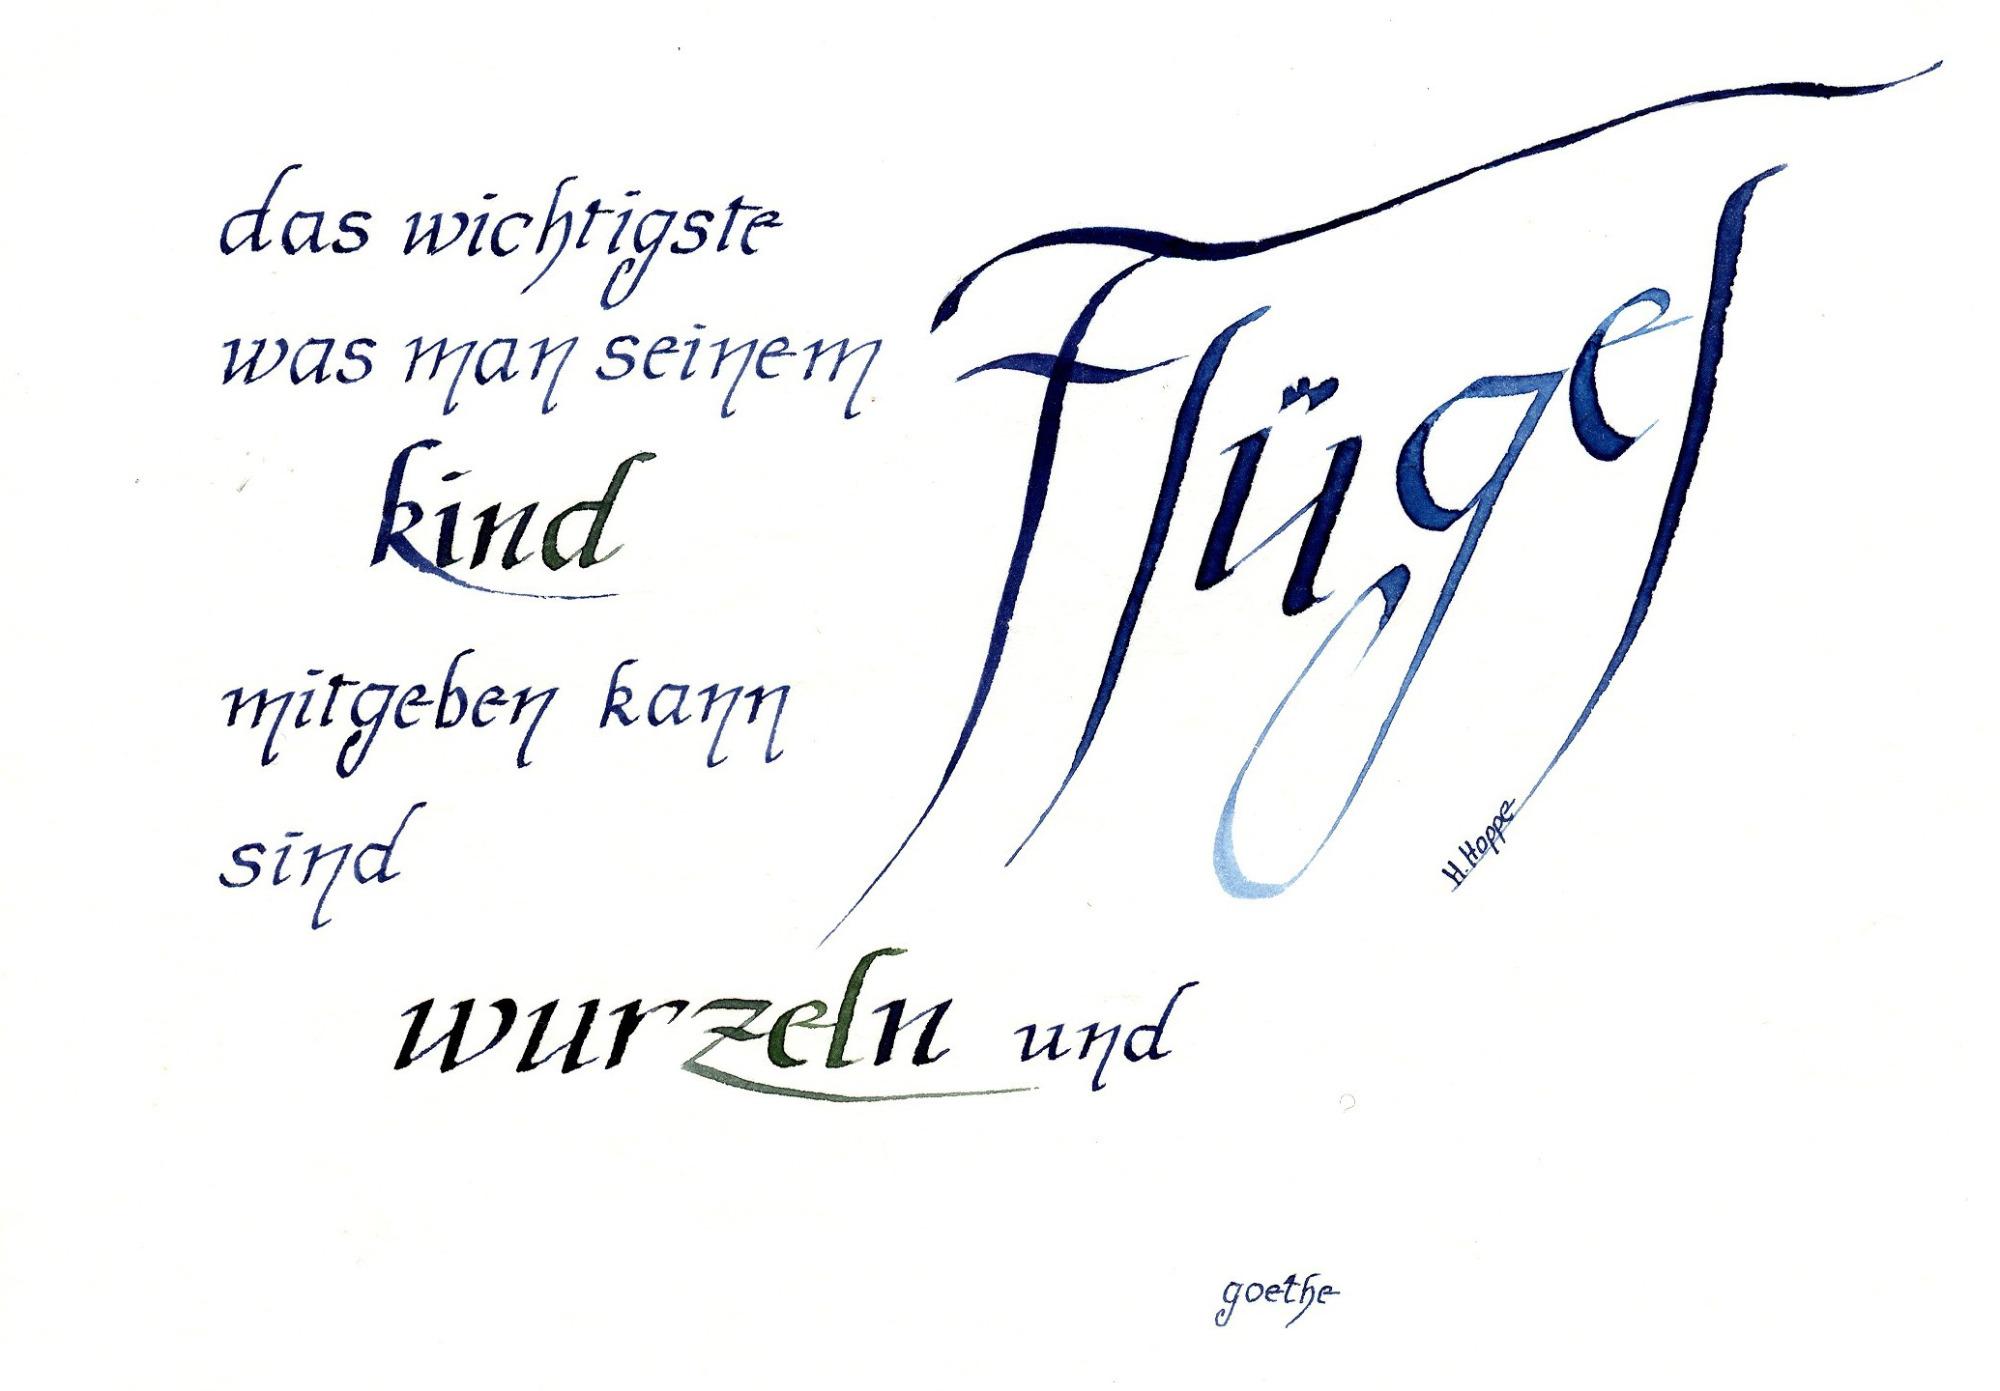 das wichtigste
was man seinem
kind
mitgeben kann
sind
wurzeln und
Flügel
H. Hoppe
goethe